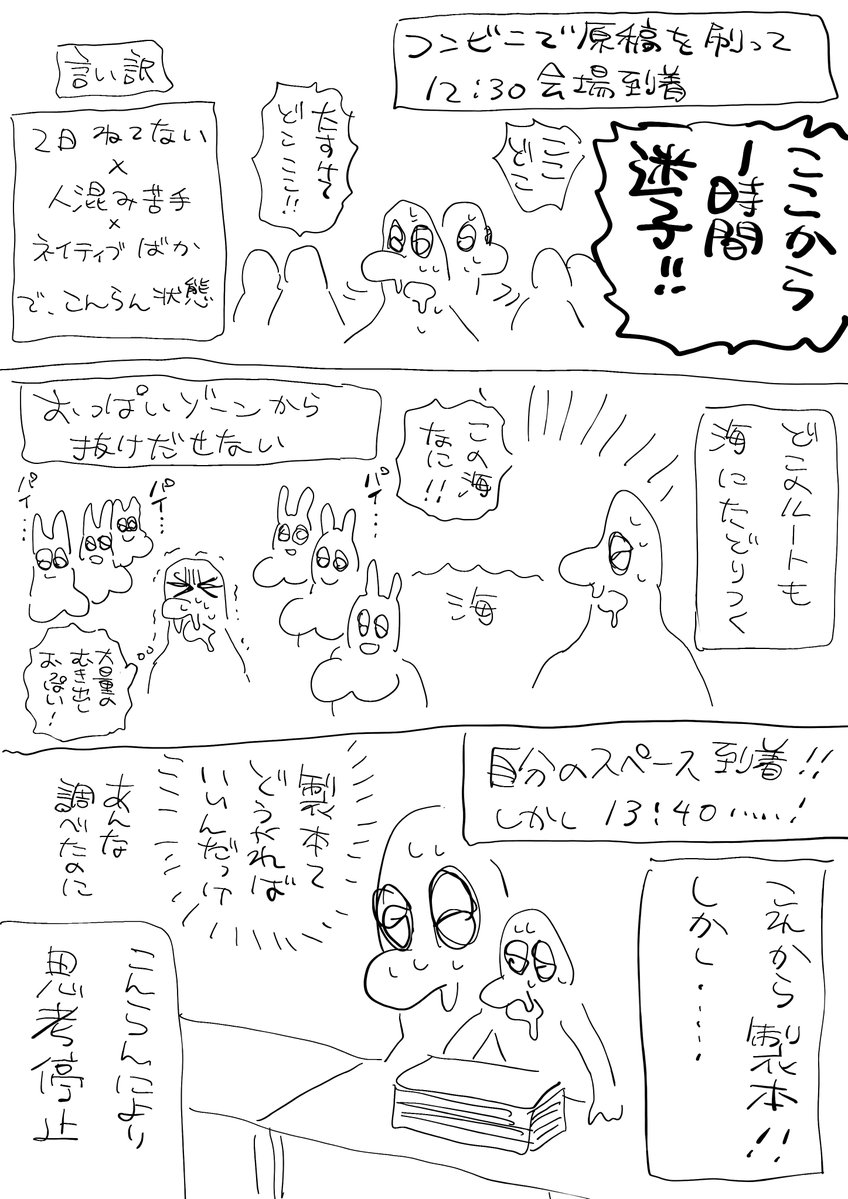 コンビニで原稿を刷って
12:30会場到着
ここから
1時間
迷子!!
ここ
どこ
大すぎて
どこここ!!
言い訳
2日ねてない
×
人混み苦手
×
ネイティブばか
で、こんらん状態
どこのルートも
海にたどりつく
この海
なに!!
海
おっぱいゾーンから
抜けだせない
パイ…
パイ…
パイ…
大量の
むき出し
おっぱい!
自分のスペース到着!!
しかし 13:40……!
これから製本!!
しかし……
製本て
どうやれば
いいんだっけ
あんな
調べたのに
こんらんにより
思考停止